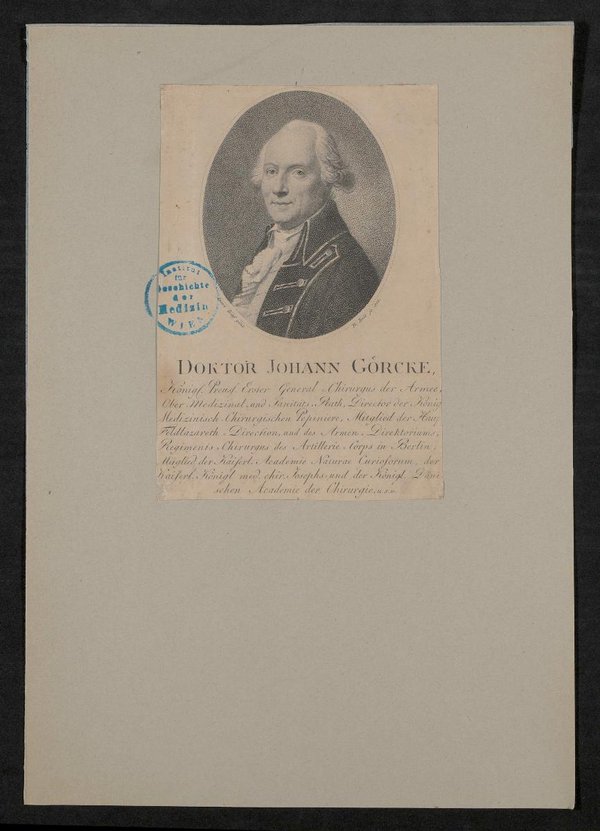 Institut
für
Geschichte
der
Medizin
WIEN
DOKTOR JOHANN GÖRCKE,
Königl. Preuß. Erster General-Chirurgus der Armee,
Ober-Medizinal-und Sanitäts-Rath, Director der König
Medizinisch-Chirurgischen Pepiniere, Mitglied der Haup
Feldlazareth-Direction, und des Armen-Direktoriums,
Regiments-Chirurgus des Artillerie-Corps in Berlin,
Mitglied der Kaiserl. Academie Naturae Curiosorum, der
Kaiserl. Königl. med. chir. Josephs, und der Königl. Däni
schen Academie der Chirurgie, u.s.w.